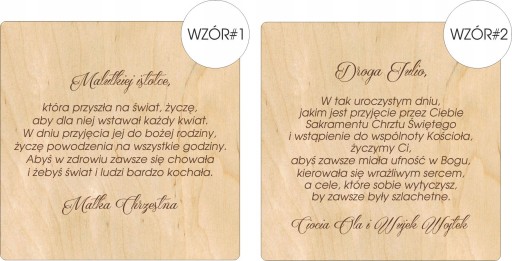 WZÓR#1
Malutkiej istotce,
która przyszła na świat, życzę,
aby dla niej wstawał każdy kwiat.
W dniu przyjęcia jej do bożej rodziny,
życzę powodzenia na wszystkie godziny.
Abyś w zdrowiu zawsze się chowała
i żebyś świat i ludzi bardzo kochała.
Matka Chrzestna
WZÓR#2
Droga Julio,
W tak uroczystym dniu,
jakim jest przyjęcie przez Ciebie
Sakramentu Chrztu Świętego
i wstąpienie do wspólnoty Kościoła,
życzymy Ci,
abyś zawsze miała ufność w Bogu,
kierowała się wrażliwym sercem,
a cele, które sobie wytyczysz,
by zawsze były szlachetne.
Ciocia Ola i Wujek Wojtek